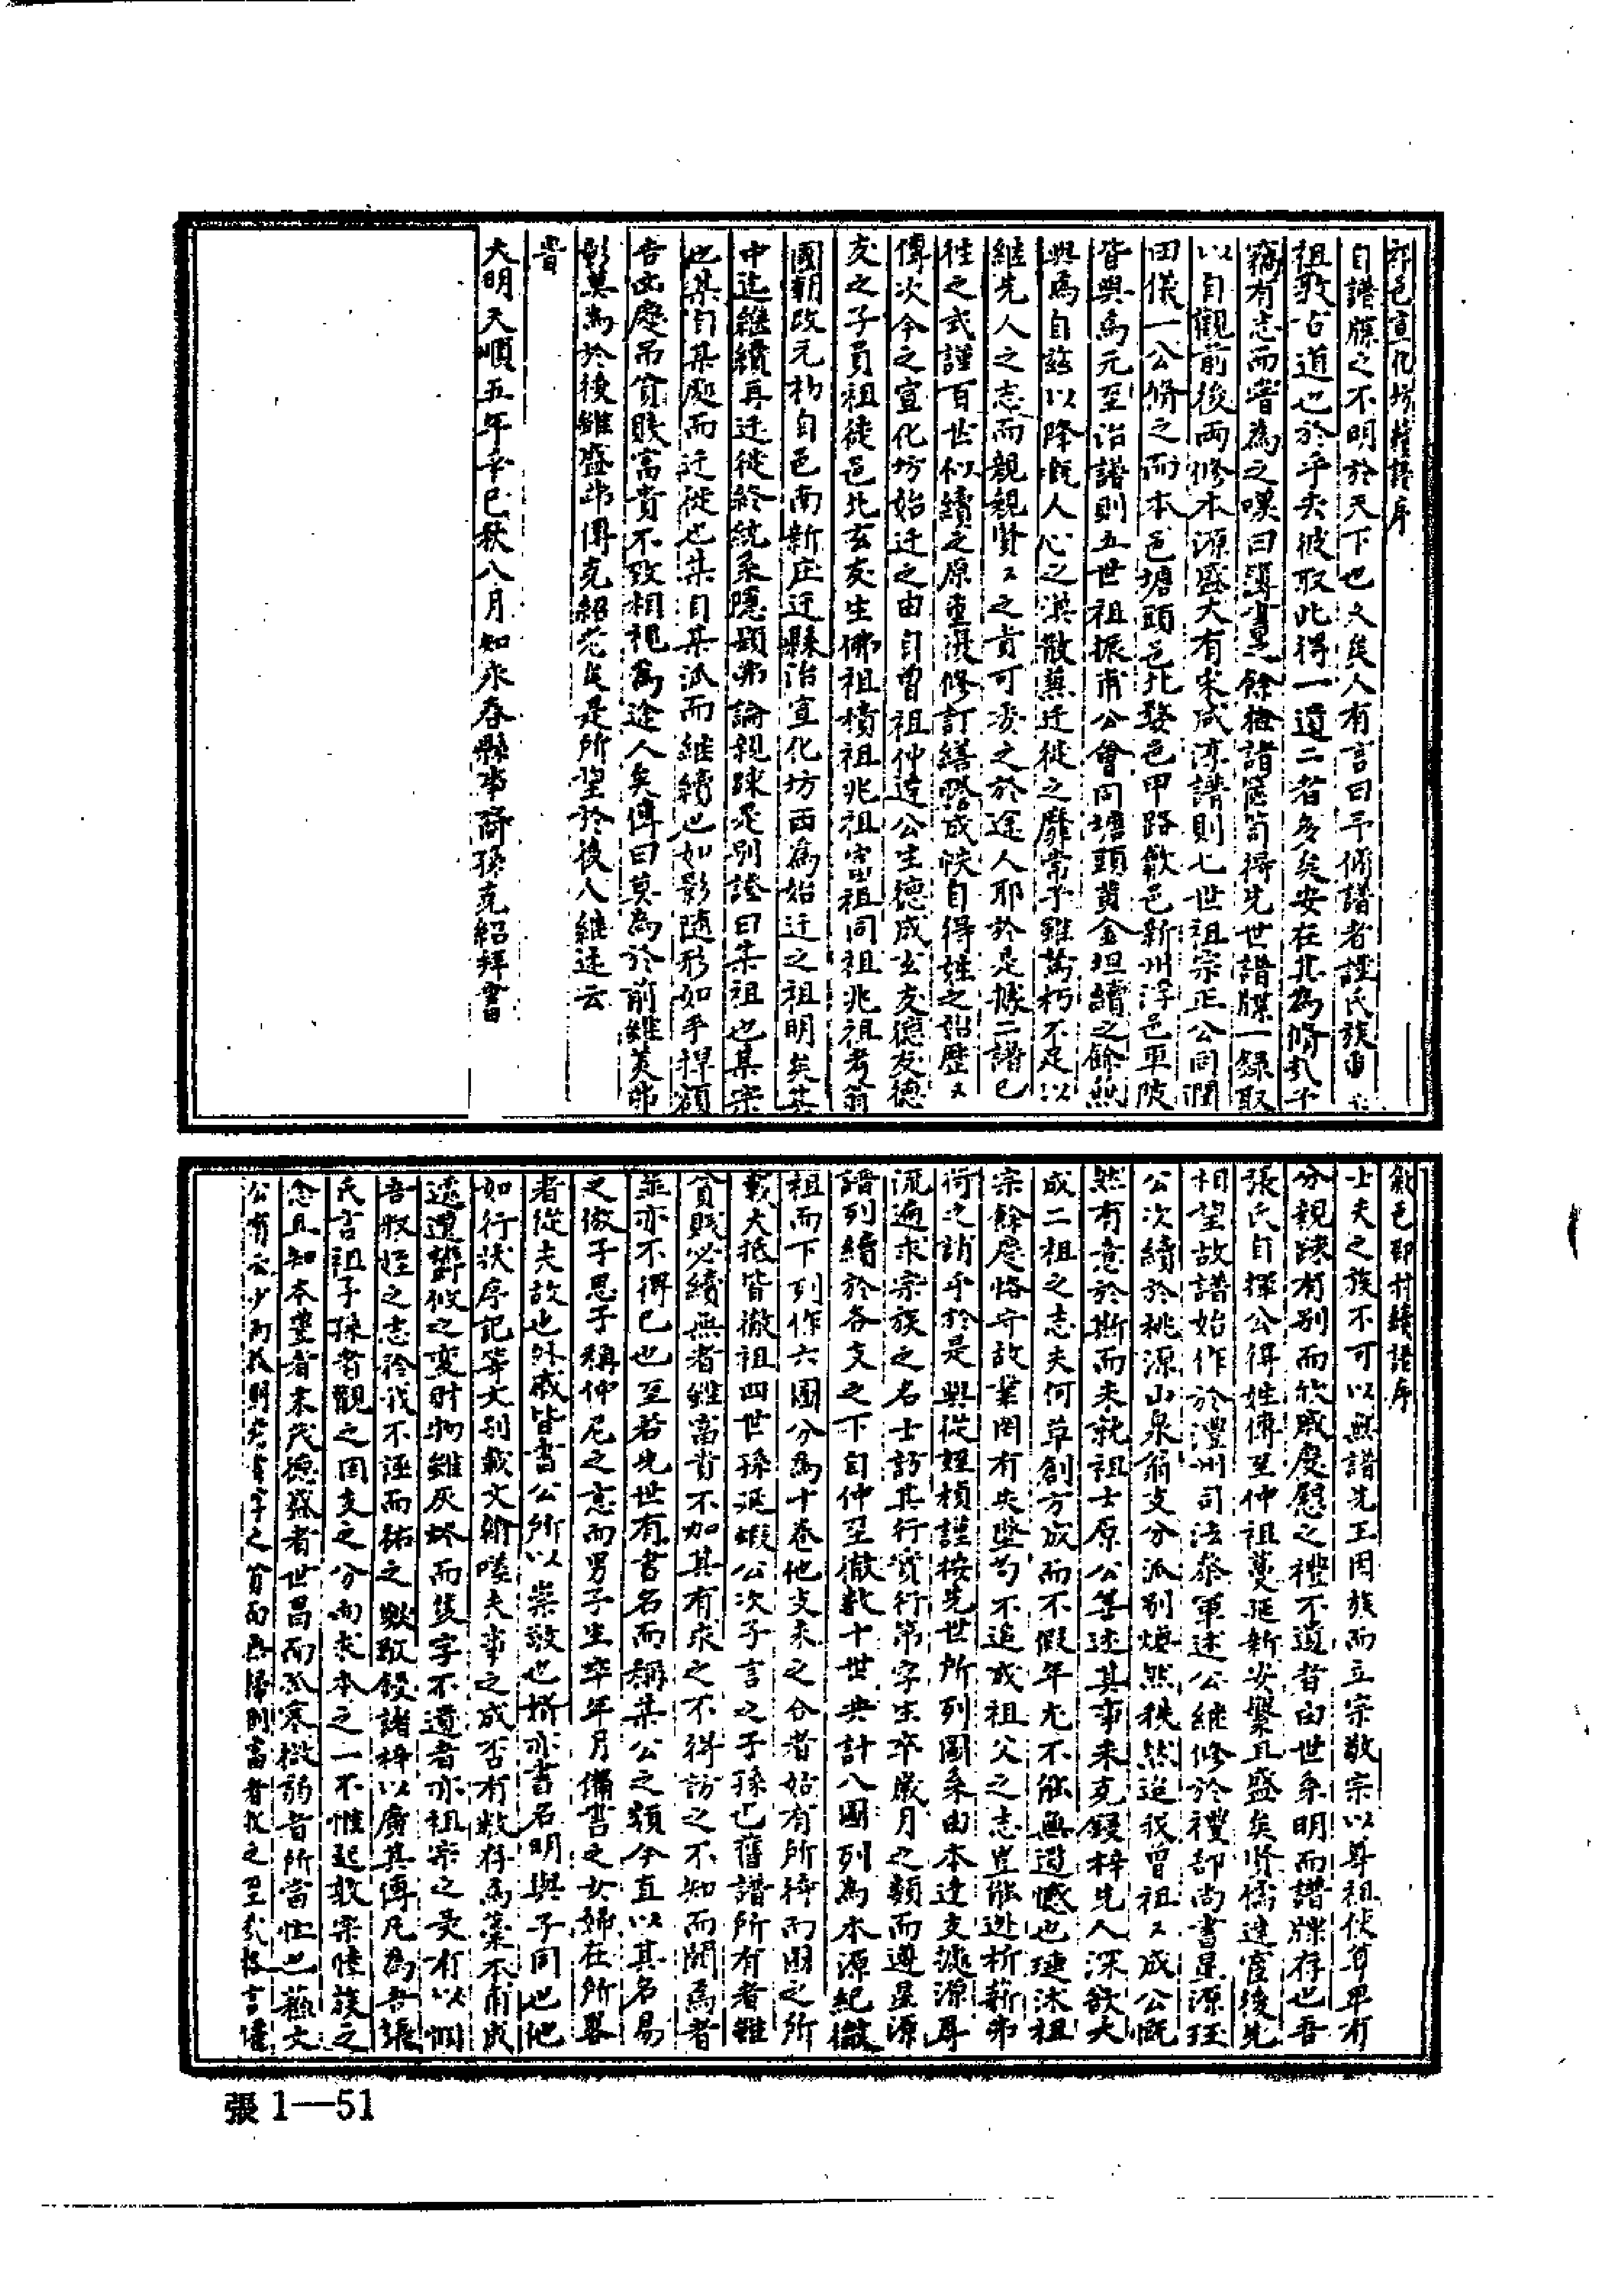 祁邑宣化坊續譜序
自譜牒之不明於天下也久矣人有言曰予脩譜者証氏族
祖敬古道也於乎夫彼取此得一遺二者多矣安在其為脩哉予
竊有志而嘗為之嘆曰簿書之餘檢諸篋笥得先世譜牒一錄取
以自觀前後兩修本源盛大有宋咸淳譜則七世祖宗正公同閏
田儀一公脩之而本邑塘頭邑北婺邑甲路歙邑新州浮邑軍陂
皆與焉元至治譜則五世祖振甫公會同塘頭黃金坦續之餘無
與焉自茲以降慨人心之渙散兼迁徙之靡常予雖萬朽不足以
繼先人之志而親親賢賢之責可委之於途人耶於是據二譜已
往之式謹百世似續之原重濬修訂繕謄成帙自得姓之詔歷歷
傳次今之宣化坊始迁之由自曾祖仲達公生德成玄友德友德
友之子員祖徒邑北玄友生佛祖積祖兆祖富祖同祖兆祖考翁
國朝改元初自邑南新庄迁縣治宣化坊西為始迁之祖明矣其
中迄繼續再迁徙終統系隱顯弗論親踈是別證曰某祖也某宗
也某自某處而迁徙也某自某派而継續也如影随形如手捍頭
吉凶慶吊貧賤富貴不致相視為途人矣傳曰莫為於前雖美弗
彰莫為於後雖盛弗傳克紹老矣是所望於後人継述云
旹
大明天順五年辛巳秋八月知永春縣事裔孫克紹拜書
歙邑邵村續譜序
士夫之族不可以無譜先王因族而立宗敬宗以尊祖使尊卑有
分親踈有別而欣戚慶慰之禮不遺者由世系明而譜牒存也吾
張氏自揮公得姓傳至仲祖蔓延新安繁且盛矣賢儒達宦後先
相望故譜始作於澧州司法叅軍述公継修於禮部尚書星源珏
公次續於桃源山泉翁支分派別燦然秩然迨我曾祖祖成公慨
然有意於斯而未就祖士原公善述其事未克鋟梓先人深欲大
成二祖之志夫何草創方成而不假年尤不能無遺憾也璉沐祖
宗餘慶恪守故業罔有失墜苟不追成祖父之志豈能逃析薪弗
荷之誚乎於是與從姪楨謹按先世所列圖系由本達支遡源尋
流遍求宗族之名士訪其行實行第字生卒歲月之類而遵星源
譜列續於各支之下自仲至徹數十世共計八圖列為本源紀徹
祖而下列作六圖分為十卷他支未之合者姑有所待而圖之所
載大抵皆徹祖四世孫延蝦公次子言之子孫也舊譜所有者雖
貧賤必續無者雖富貴不加其有求之不得訪之不知而闕焉者
並亦不得已也至若先世有書名而稱某公之類今直以其名易
之倣子思子稱仲尼之意而男子生卒年月備書之女婦在所畧
者從夫故也外戚皆書公所以崇敬也壻亦書名明與子同也他
如行狀序記等文別載文翰嗟夫事之成否有數存焉藁本甫成
遠遭欝攸之變財物雖灰燼而隻字不遺者亦祖宗之灵有以憫
吾叔姪之志矜我不誣而祐之歟敬鋟諸梓以廣其傳凡為吾張
氏言祖子孫者觀之因支之分而求本之一不惟起敬宗睦族之
念且知本豊者末茂德盛者世昌而孤寒微弱者所當恤也蘓文
公有云少而
張1—51